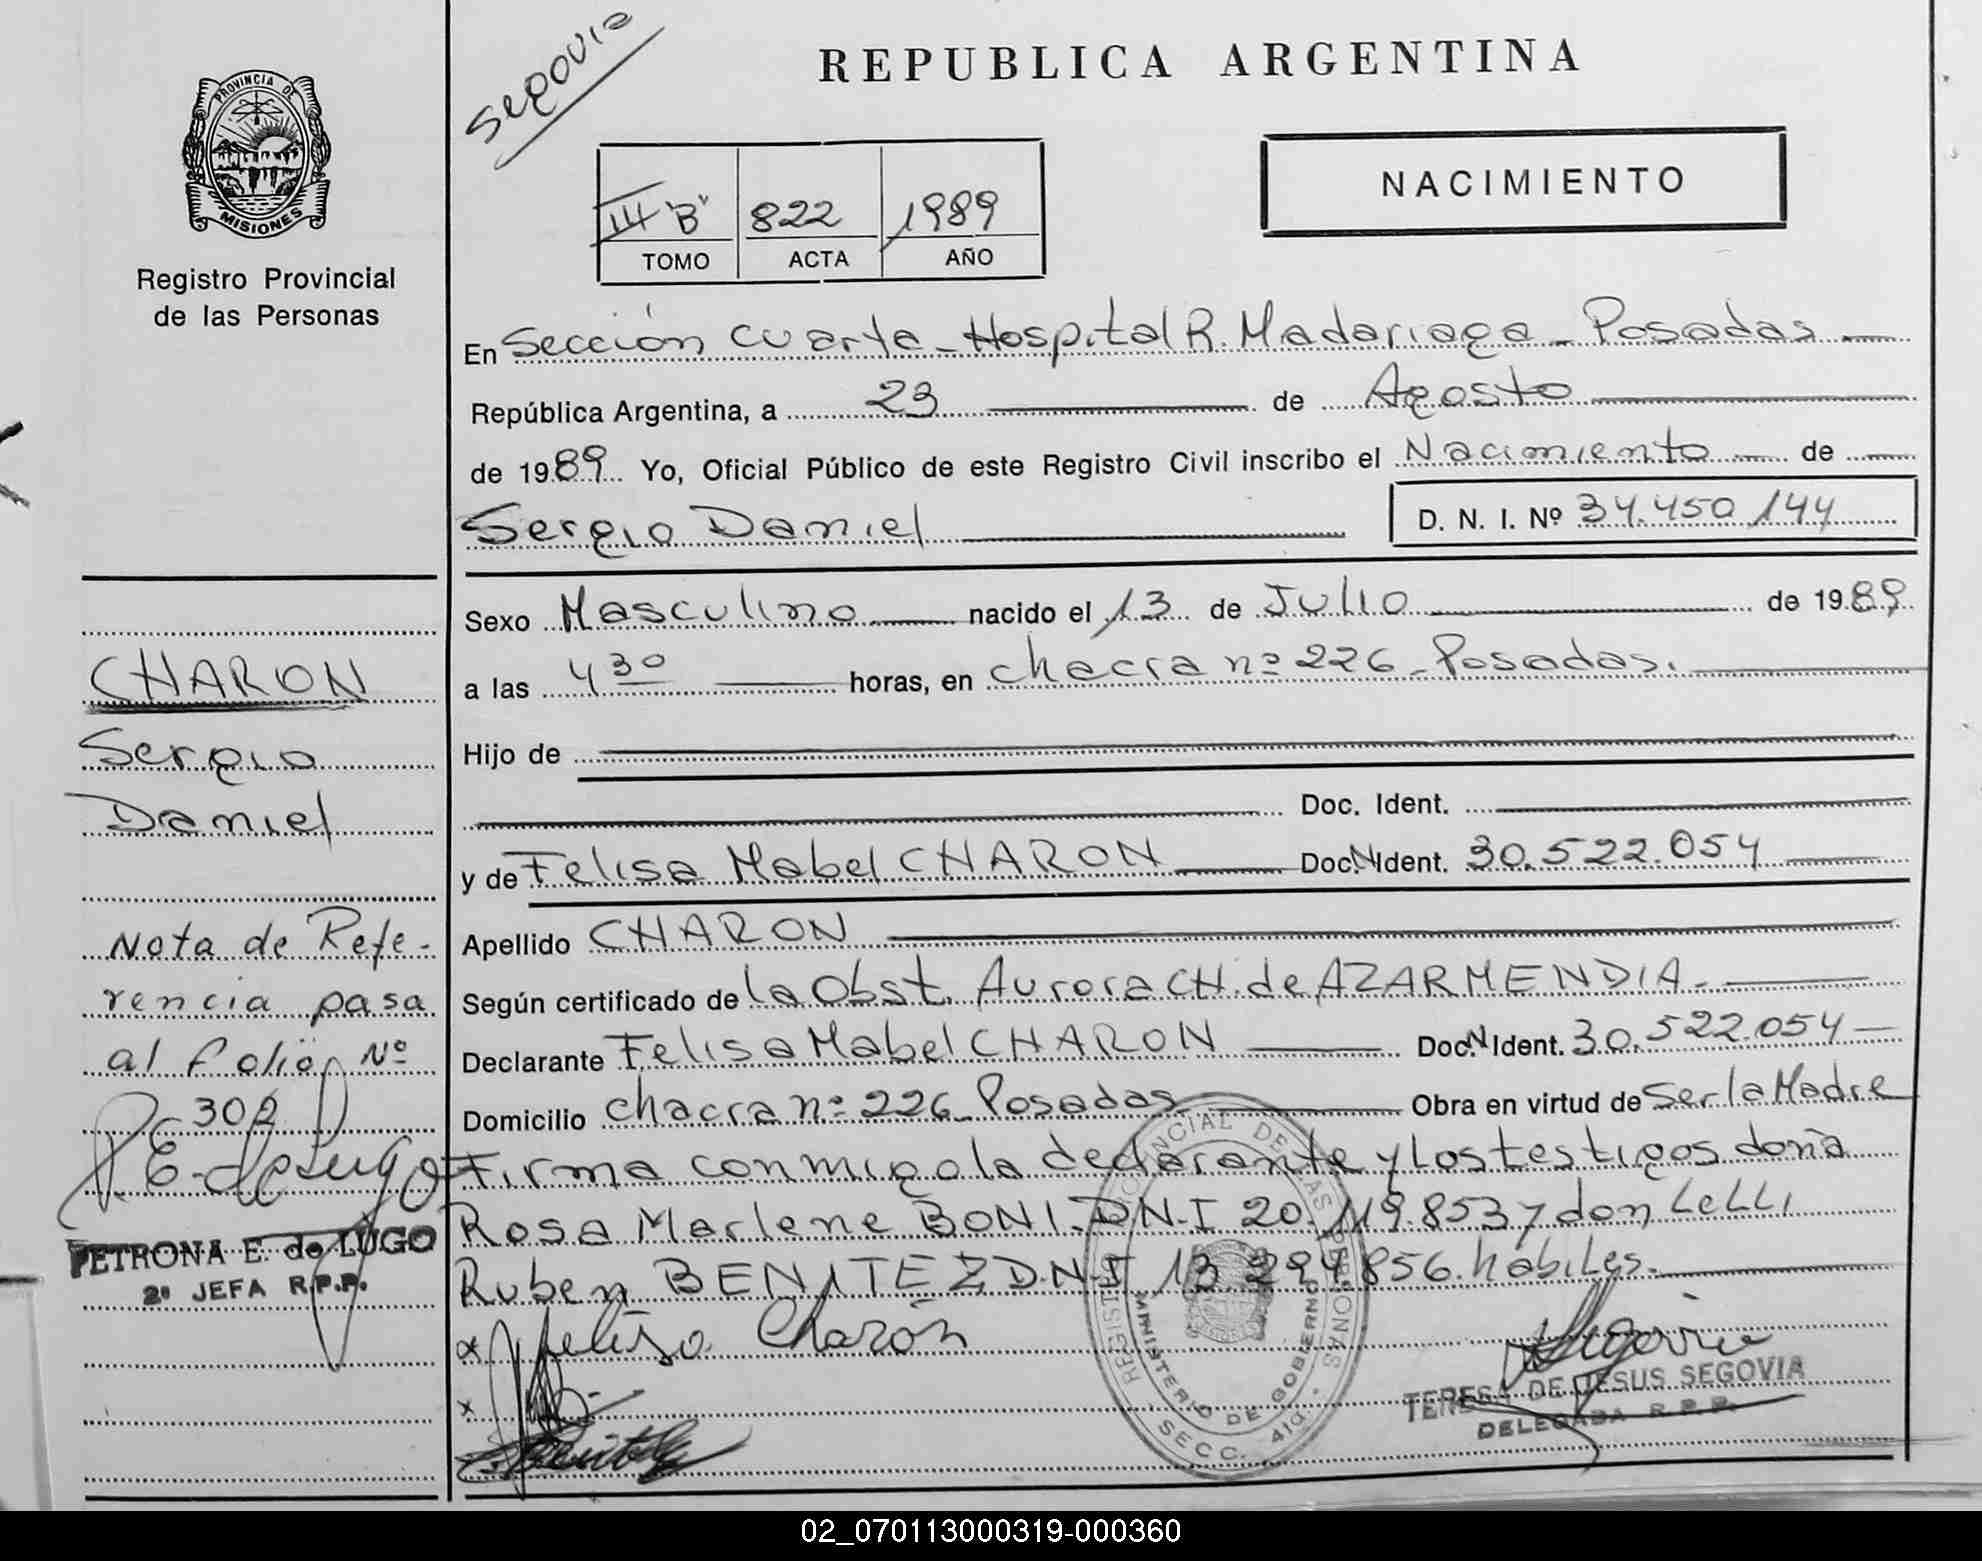 Segovia
REPUBLICA ARGENTINA
PROVINCIA DE
MISIONES
Registro Provincial
de las Personas
III "B" 822 1989
TOMO ACTA AÑO
NACIMIENTO
En Sección Cuarta - Hospital R. Madariaga - Posadas
República Argentina, a 23 de Agosto
de 1989 Yo, Oficial Público de este Registro Civil inscribo el Nacimiento de
Sergio Daniel
D. N. I. Nº 34.450.144
Sexo Masculino nacido el 13 de Julio de 1989
a las 4 30 horas, en chacra nº 226 - Posadas.
Hijo de
Doc. Ident.
y de Felisa Mabel CHARON Doc.N Ident. 30.522.054
Apellido CHARON
Según certificado de la Obst. Aurora CH. de AZARMENDIA.
Declarante Felisa Mabel CHARON Doc.N Ident. 30.522.054
Domicilio chacra nº 226 - Posadas Obra en virtud de Ser la Madre
Firma conmigo la declarante y Los testigos doña
Rosa Marlene BONI - D.N-I 20.119.853 y don LeLLi
Ruben BENITEZ D.N-I 13.294.856. hábiles.
CHARON
Sergio
Daniel
Nota de Refe-
rencia pasa
al folio Nº
302
P. E. de Lugo
PETRONA E. de LUGO
2ª JEFA R.P.P.
x Felisa Charón
x
Benitez
REGISTRO PROVINCIAL DE LAS PERSONAS
MINISTERIO DE GOBIERNO
SECC. 4ta.
Segovia
TERESA DE JESUS SEGOVIA
DELEGADA R.P.P.
02_070113000319-000360